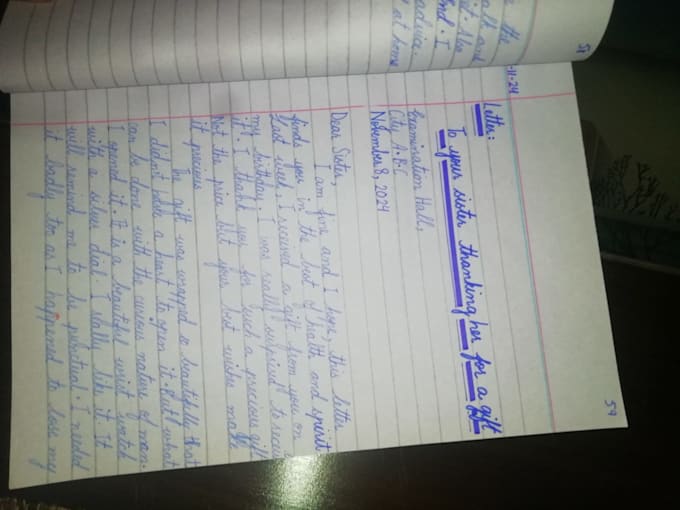 e the
alk and
it. Also
end. I
advice.
at home
51
-11-24
59
Letter:
To your sister thanking her for a gift
Examination Hall,
City A.B.C
November 8, 2024
Dear Sister,
I am fine and I hope, this letter
finds you in the best of health and spirit.
Last week, I received a gift from you on
my birthday. I was really surprised to receive
it! I thank you for such a precious gift
Not the price but your best wishes make
it precious
The gift was wrapped so beautifully that
I did not have a heart to open it. But what
can be done with the curious nature of man.
I opened it. It is a beautiful wrist watch
with a silver dial. I really like it. It
will remind me to be punctual. I needed
it badly too as I happened to lose my